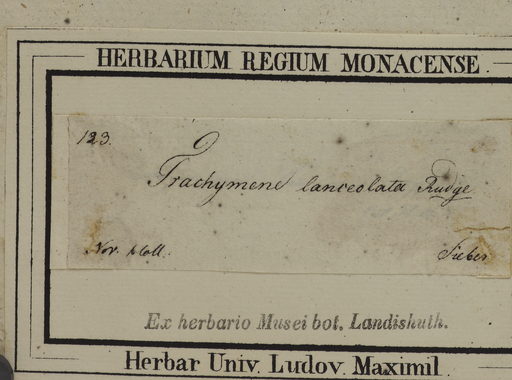 HERBARIUM REGIUM MONACENSE.
123.
Trachymene lanceolata Rudge
Nov. Holl.
Sieber
Ex herbario Musei bot. Landishuth.
Herbar Univ. Ludov. Maximil.